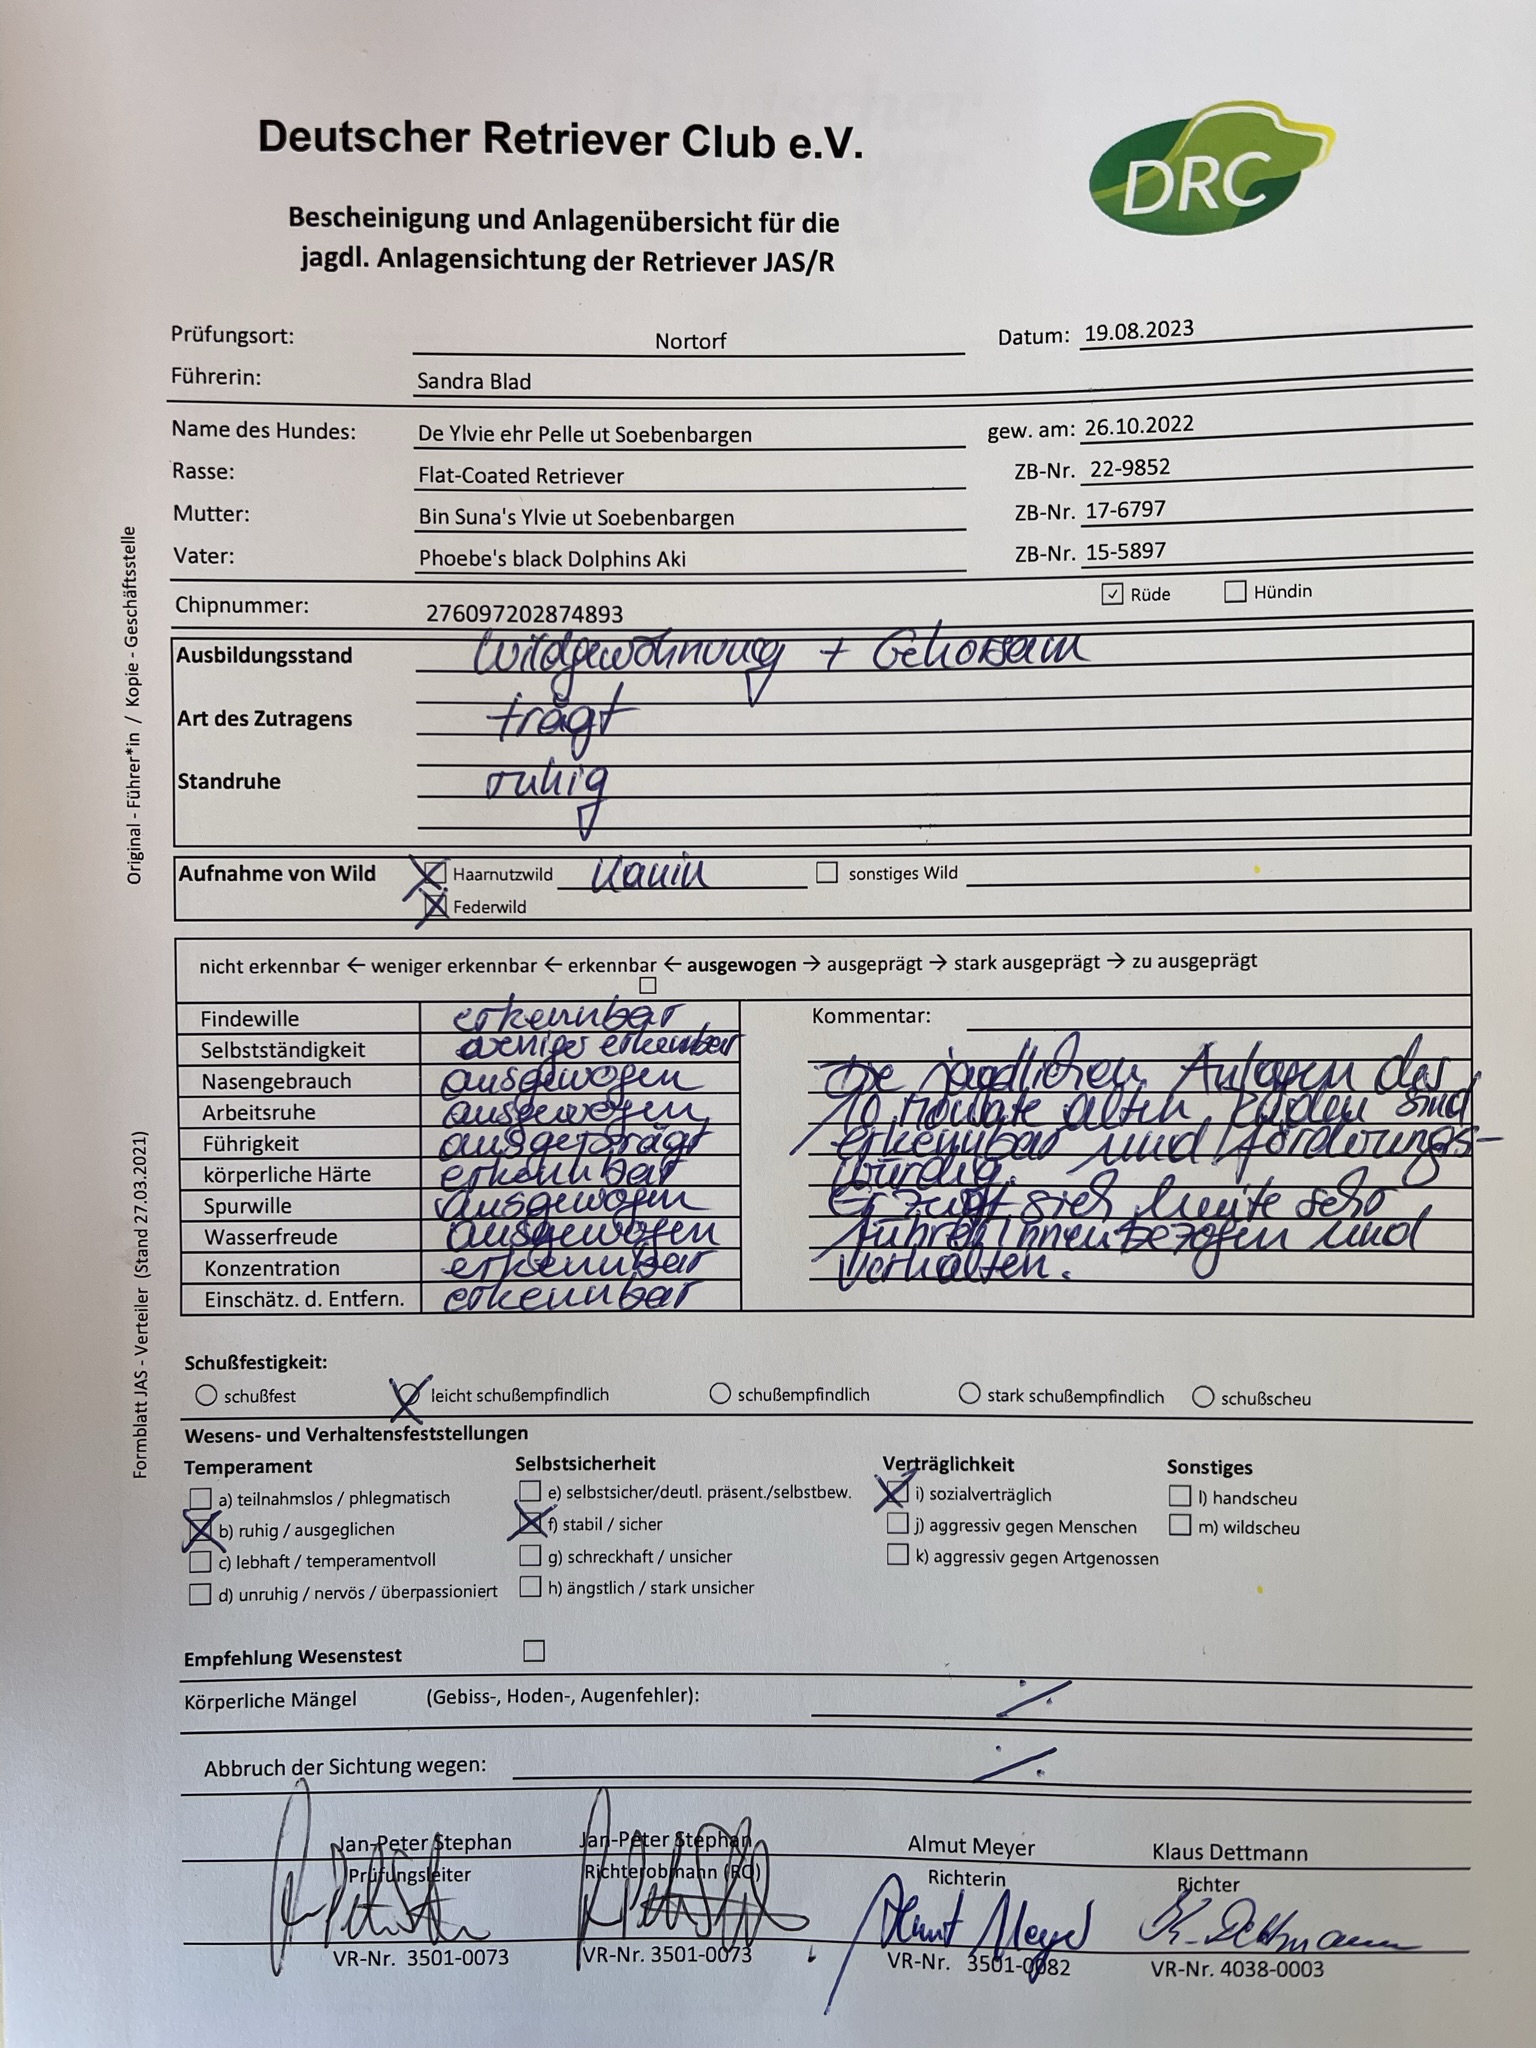 Deutscher Retriever Club e.V.
DRC
Bescheinigung und Anlagenübersicht für die
jagdl. Anlagensichtung der Retriever JAS/R
Prüfungsort: Nortorf Datum: 19.08.2023
Führerin: Sandra Blad
Name des Hundes: De Ylvie ehr Pelle ut Soebenbargen gew. am: 26.10.2022
Rasse: Flat-Coated Retriever ZB-Nr. 22-9852
Mutter: Bin Suna's Ylvie ut Soebenbargen ZB-Nr. 17-6797
Vater: Phoebe's black Dolphins Aki ZB-Nr. 15-5897
Chipnummer: 276097202874893 ✓ Rüde Hündin
Ausbildungsstand Wildgewöhnung + Gehorsam
Art des Zutragens trägt
Standruhe ruhig
Aufnahme von Wild Haarnutzwild Kanin sonstiges Wild
Federwild
nicht erkennbar ← weniger erkennbar ← erkennbar ← ausgewogen → ausgeprägt → stark ausgeprägt → zu ausgeprägt
Findewille erkennbar
Selbstständigkeit weniger erkennbar
Nasengebrauch ausgewogen
Arbeitsruhe ausgewogen
Führigkeit ausgeprägt
körperliche Härte erkennbar
Spurwille ausgewogen
Wasserfreude ausgewogen
Konzentration erkennbar
Einschätz. d. Entfern. erkennbar
Kommentar:
Die jagdlichen Anlagen des
10 Monate alten Rüden sind
erkennbar und förderungs-
würdig.
Er zeigt sich heute sehr
führerinnenbezogen und
verhalten.
Schußfestigkeit:
schußfest leicht schußempfindlich schußempfindlich stark schußempfindlich schußscheu
Wesens- und Verhaltensfeststellungen
Temperament
a) teilnahmslos / phlegmatisch
b) ruhig / ausgeglichen
c) lebhaft / temperamentvoll
d) unruhig / nervös / überpassioniert
Selbstsicherheit
e) selbstsicher/deutl. präsent./selbstbew.
f) stabil / sicher
g) schreckhaft / unsicher
h) ängstlich / stark unsicher
Verträglichkeit
i) sozialverträglich
j) aggressiv gegen Menschen
k) aggressiv gegen Artgenossen
Sonstiges
l) handscheu
m) wildscheu
Empfehlung Wesenstest
Körperliche Mängel (Gebiss-, Hoden-, Augenfehler): ./.
Abbruch der Sichtung wegen: ./.
Jan-Peter Stephan Jan-Peter Stephan Almut Meyer Klaus Dettmann
Prüfungsleiter Richterobmann (RO) Richterin Richter
Almut Meyer K. Dettmann
VR-Nr. 3501-0073 VR-Nr. 3501-0073 VR-Nr. 3501-0082 VR-Nr. 4038-0003
Original - Führer*in / Kopie - Geschäftsstelle
Formblatt JAS - Verteiler (Stand 27.03.2021)